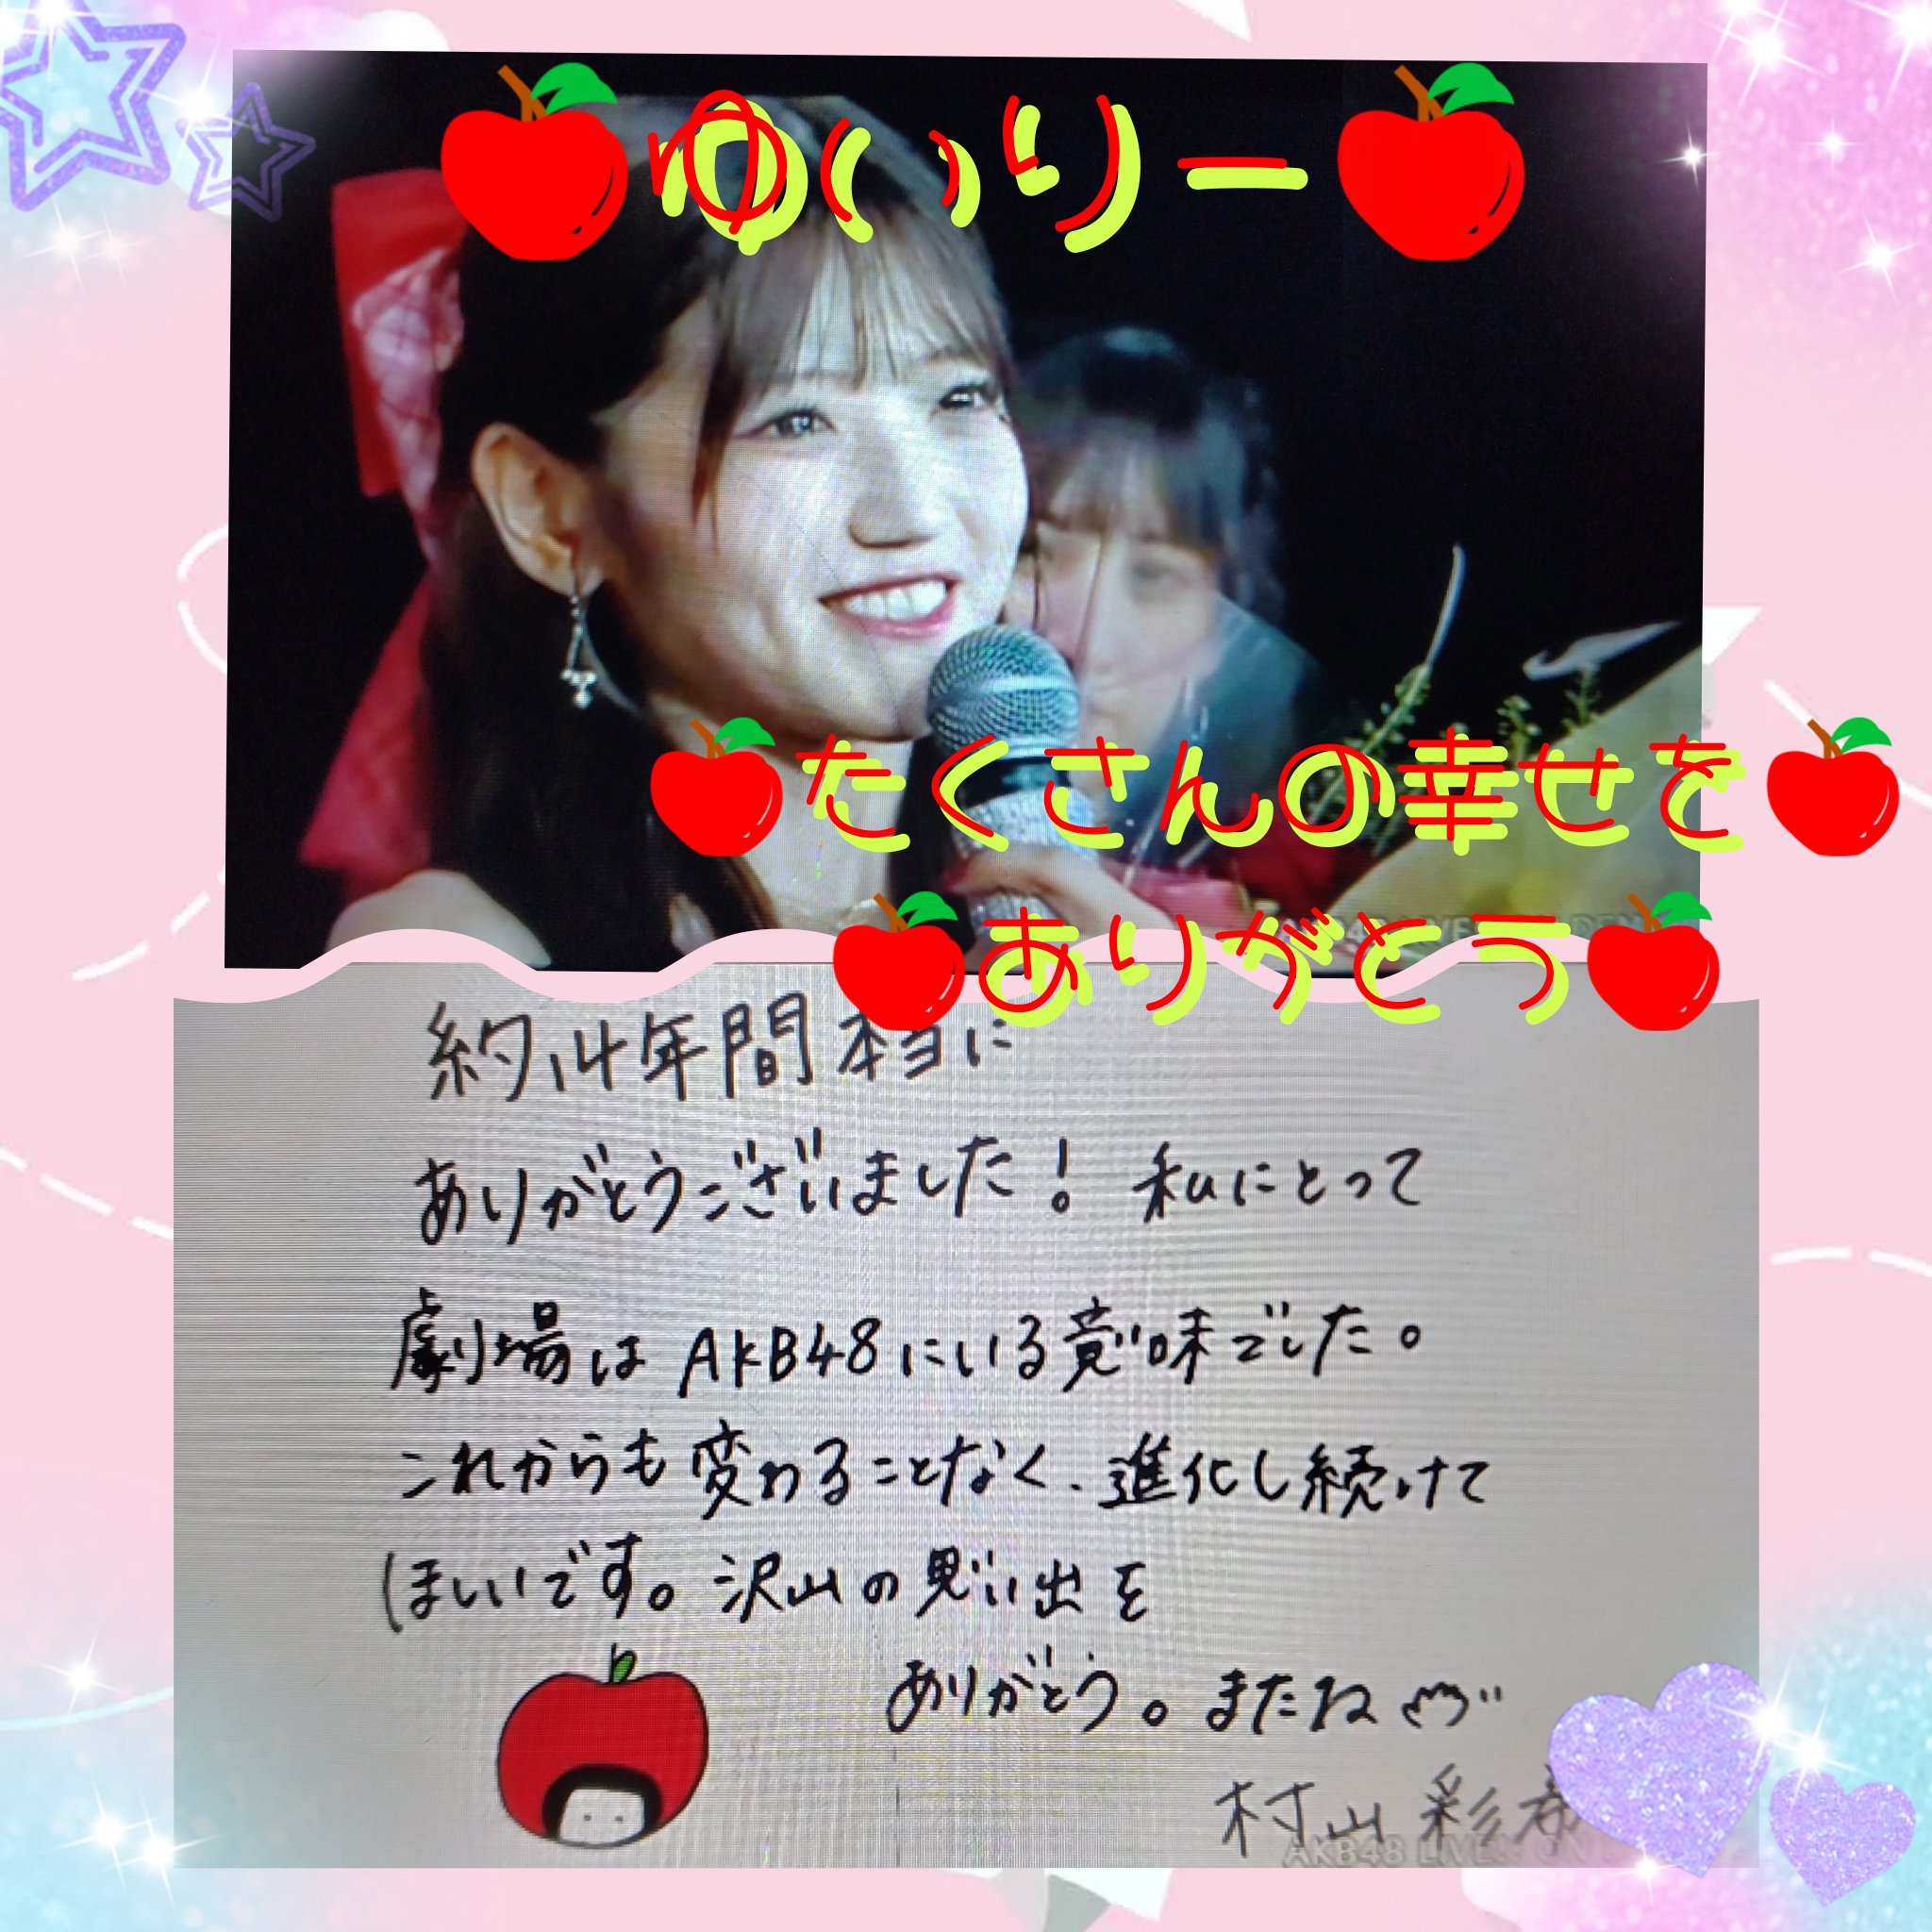 ゆいりー
たくさんの幸せを
ありがとう
約14年間本当に
ありがとうございました! 私にとって
劇場はAKB48にいる意味でした。
これからも変わることなく、進化し続けて
ほしいです。沢山の思い出を
ありがとう。またね
村山彩希
AKB48 LIVE!! ON